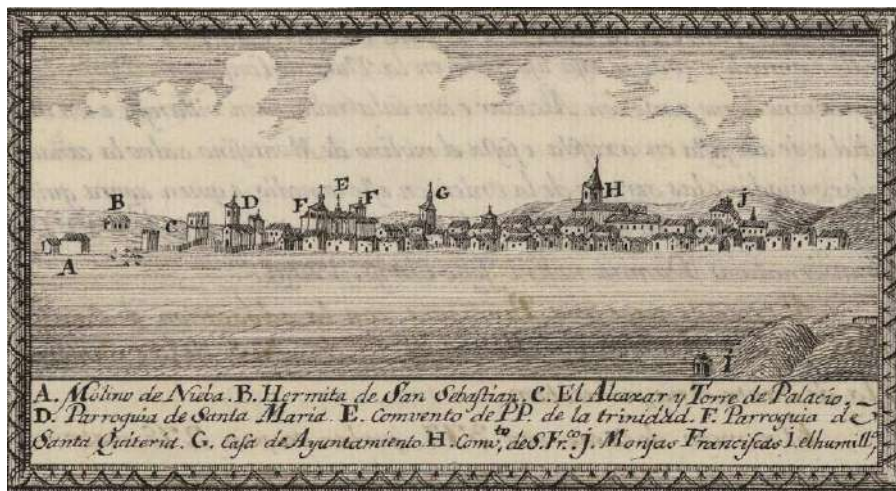 B
C
D
F
E
F
G
H
J
A
i
A. Molino de Nieba. B. Hermita de San Sebastian. C. El Alcazar y Torre de Palacio.
D. Parroquia de Santa Maria. E. Comvento de PP. de la trinidad. F. Parroquia de
Santa Quiteria. G. Casa de Ayuntamiento. H. Comv.to de S. Fr.co J. Monjas Franciscas